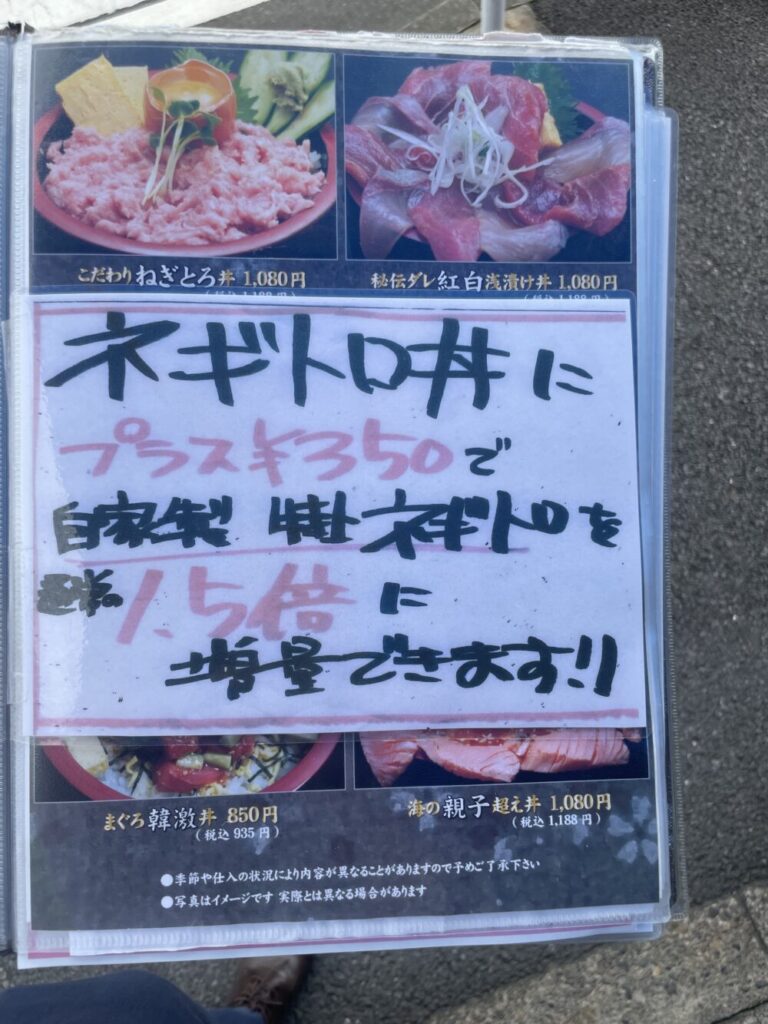 こだわりねぎとろ丼 1,080円
秘伝ダレ紅白浅漬け丼 1,080円
(税込 1,188円)
(税込 1,188円)
ネギトロ丼に
プラス¥350で
自家製 特上ネギトロを
通常の1.5倍に
増量できます!!
まぐろ韓激丼 850円
(税込 935円)
海の親子超え丼 1,080円
(税込 1,188円)
●季節や仕入の状況により内容が異なることがありますので予めご了承下さい
●写真はイメージです 実際とは異なる場合があります